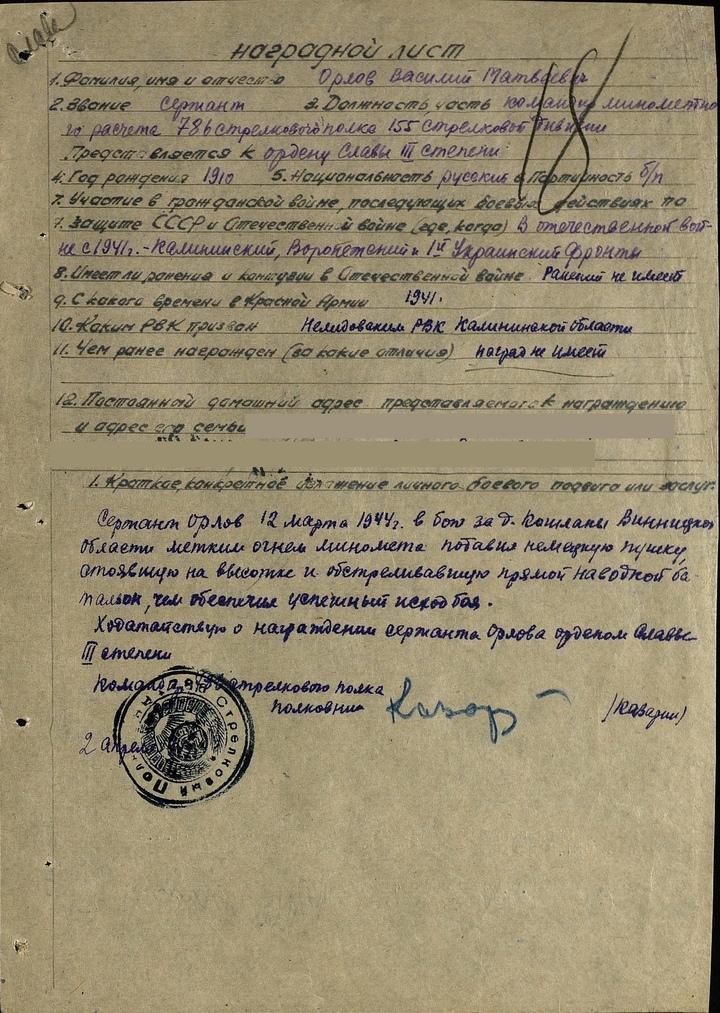 Слава
18
наградной лист
1. Фамилия, имя и отчество Орлов Василий Матвеевич
2. Звание сержант 3. Должность часть командир минометно
го расчета 786 стрелкового полка 155 стрелковой дивизии
Представляется к ордену Славы III степени
4. Год рождения 1910 5. Национальность русский 6 Партийность б/п
7. Участие в гражданской войне, последующих боевых действиях по
7. Защите СССР и Отечественной войне (где, когда) В отечественной вой-
не с 1941г. - Калининский, Воронежский и 1й Украинский фронты
8. Имеет ли ранения и контузии в Отечественной войне Ранений не имеет
9. С какого времени в Красной Армии 1941г.
10. Каким РВК призван Нелидовским РВК Калининской области
11. Чем ранее награжден (за какие отличия) наград не имеет
12. Постоянный домашний адрес представляемого к награждению
и адрес его семьи
1. Краткое, конкретное изложение личного боевого подвига или заслуг.
Сержант Орлов 12 марта 1944г. в бою за д. Кошланы Винницкой
области метким огнем миномета подавил немецкую пушку,
стоявшую на высотке и обстреливавшую прямой наводкой ба-
тальон, чем обеспечил успешный исход боя.
Ходатайствую о награждении сержанта Орлова орденом Славы
III степени
Командир 786 стрелкового полка
полковник (Казарин)
2 апреля
Стрелковый Полк